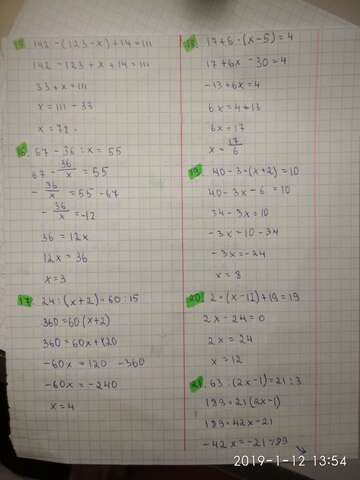 15 142 - (123 - x) + 14 = 111
142 - 123 + x + 14 = 111
33 + x = 111
x = 111 - 33
x = 78
16 67 - 36 : x = 55
67 - 36/x = 55
- 36/x = 55 - 67
- 36/x = -12
36 = 12x
12x = 36
x = 3
17 24 : (x + 2) = 60 : 15
360 = 60(x + 2)
360 = 60x + 120
-60x = 120 - 360
-60x = -240
x = 4
18 17 + 6 · (x - 5) = 4
17 + 6x - 30 = 4
-13 + 6x = 4
6x = 4 + 13
6x = 17
x = 17/6
19 40 - 3 · (x + 2) = 10
40 - 3x - 6 = 10
34 - 3x = 10
-3x = 10 - 34
-3x = -24
x = 8
20. 2 · (x - 12) + 19 = 19
2x - 24 = 0
2x = 24
x = 12
21. 63 : (2x - 1) = 21 : 3
189 = 21(2x - 1)
189 = 42x - 21
-42x = -21 - 189
2019-1-12 13:54